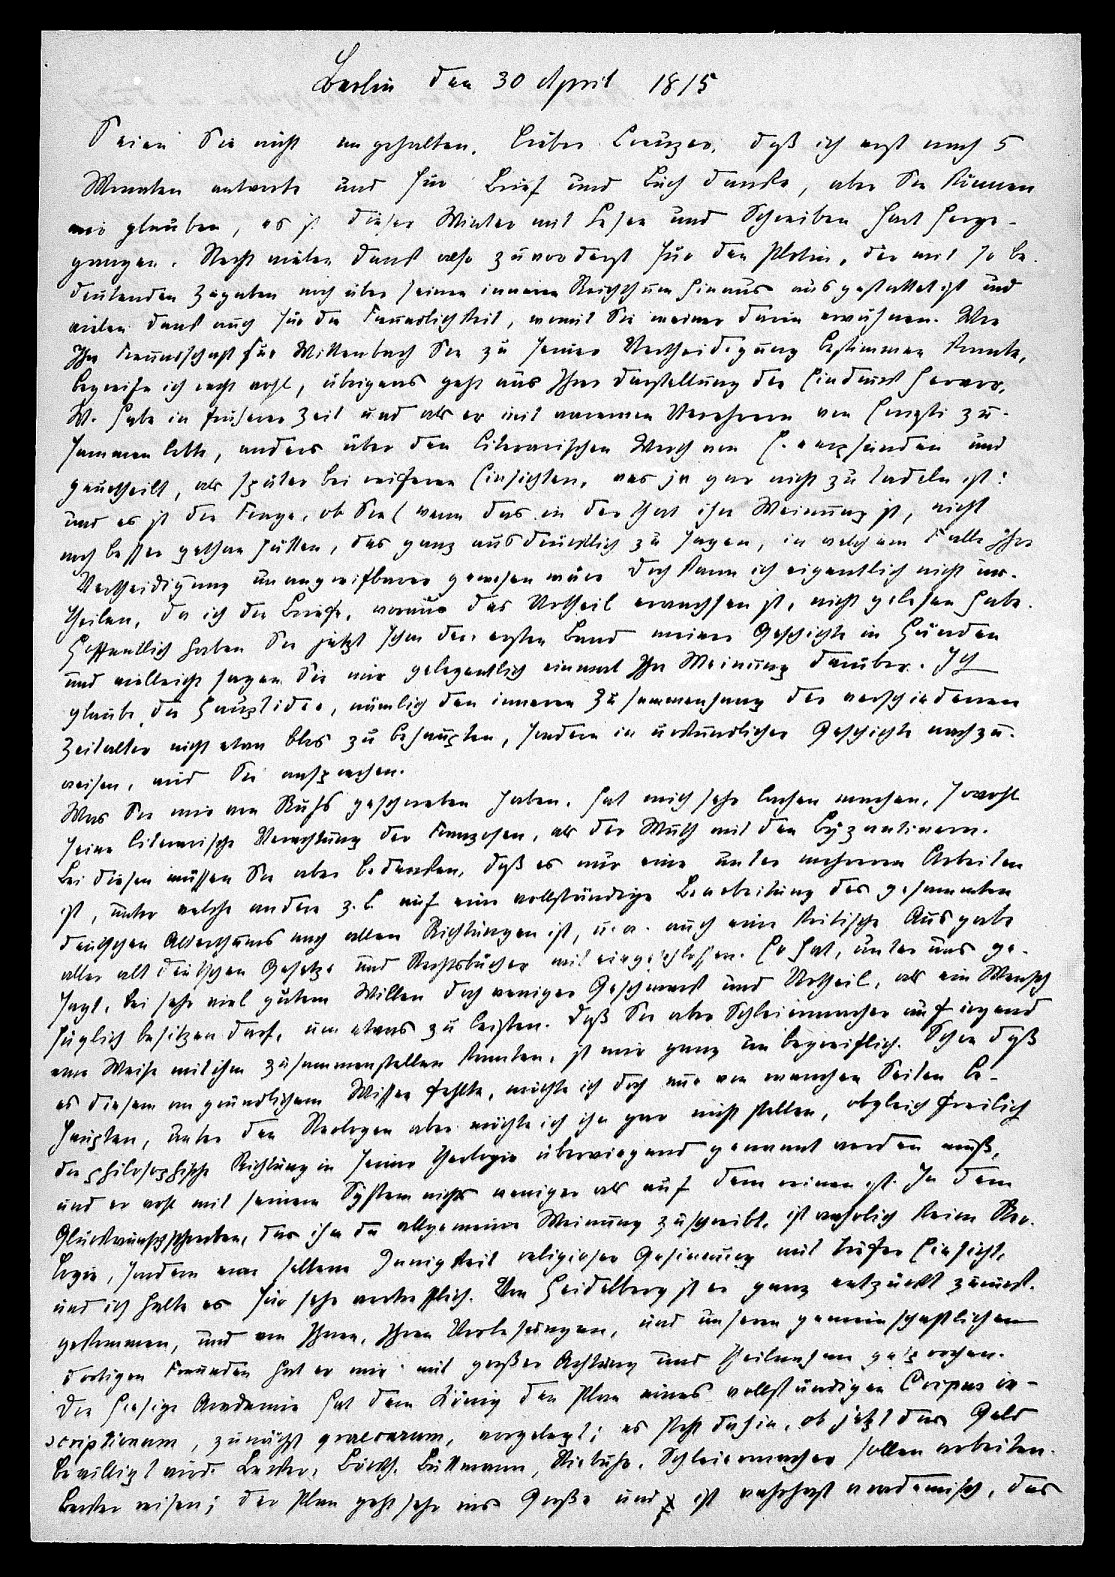 Berlin den 30 April 1815
Seien Sie nicht ungehalten, lieber Creuzer, daß ich erst nach 5
Monaten antworte und für Brief und Buch danke, aber Sie können
mir glauben, es ist dieser Winter mit Lesen und Schreiben hart herge-
gangen. Recht vielen Dank also zuvorderst für den Plotin, der mit so be-
deutenden Zugaben noch über seinen inneren Reichthum hinaus ausgestattet ist und
vielen Dank auch für die Freundlichkeit, womit Sie meiner darin erwähnen. Wie
Ihre Freundschaft für Wittenbach Sie zu seiner Vertheidigung bestimmen konnte,
begreife ich recht wohl, übrigens geht aus Ihrer Darstellung der Eindruck hervor,
W. habe in früherer Zeit und als er mit warmen Verehrern von zu-
sammen lebte, anders über den literarischen Werth von C. empfunden und
geurtheilt, als später bei reiferen Einsichten, was ja gar nicht zu tadeln ist:
und es ist die Frage, ob Sie (wenn das in der That ihre Meinung ist, nicht
noch besser gethan hätten, das ganz ausdrücklich zu sagen, in welchem Falle Ihre
Vertheidigung unangreifbarer gewesen wäre doch kann ich eigentlich nicht ur-
theilen, da ich die Briefe, woraus das Urtheil erwachsen ist, nicht gelesen habe.
Hoffentlich haben Sie jetzt schon den ersten Band meiner Geschichte in Händen
und vielleicht sagen Sie mir gelegentlich einmal Ihre Meinung darüber. Ich
glaube, die Hauptidee, nämlich den inneren Zusammenhang der verschiedenen
Zeitalter nicht etwa blos zu behaupten, sondern in urkundlicher Geschichte nachzu-
weisen, wird Sie ansprechen.
Was Sie mir von Rühs geschrieben haben, hat mich sehr lachen machen, sowohl
seine literarische Verachtung der Franzosen, als der Muth mit den Byzantinern.
Bei diesen müssen Sie aber bedenken, daß es nur eine unter mehreren Arbeiten
ist, unter welche andere z. B. auf eine vollständige Bearbeitung des gesammten
deutschen Alterthums nach allen Richtungen ist, u. a. auch eine kritische Ausgabe
aller alt deutschen Gesetze und Rechtsbücher mit eingeschlossen. Er hat, unter uns ge-
sagt, bei sehr viel gutem Willen doch weniger Geschmack und Urtheil, als ein Mensch
füglich besitzen darf, um etwas zu leisten. Daß Sie aber Schleiermacher auf irgend
eine Weise mit ihm zusammenstellen konnten, ist mir ganz unbegreiflich. Schon daß
es diesem an gründlichem Wissen fehlte, möchte ich doch nur von manchen Seiten be-
haupten, unter den Theologen aber möchte ich ihn gar nicht stellen, obgleich freilich
die philosophische Richtung in seiner Theologie überwiegend genannt werden muß,
und er wohl mit seinem System nichts weniger als auf dem reinen ist. In dem
Glückwünschschreiben, das ihm die allgemeine Meinung zuschreibt, ist wahrlich keine Theo-
logie, sondern eine seltene Innigkeit religioser Gesinnung mit tiefer Einsicht,
und ich halte es für sehr vortrefflich. Von Heidelberg ist er ganz entzückt zurück-
gekommen, und von Ihnen, Ihren Vorlesungen, und unseren gemeinschaftlichen
dortigen Freunden hat er mir mit großer Achtung und Theilnahme gesprochen.
Die hiesige Academie hat dem König den Plan eines vollständigen Corpus in-
scriptionum, zunächst graecarum, vorgelegt; es steht dahin, ob jetzt das Geld
bewilligt wird. Becker, Böckh, Buttmann, Niebuhr, Schleiermacher sollen arbeiten.
Becker reisen; der Plan geht sehr ins Große und ist wahrhaft academisch, das